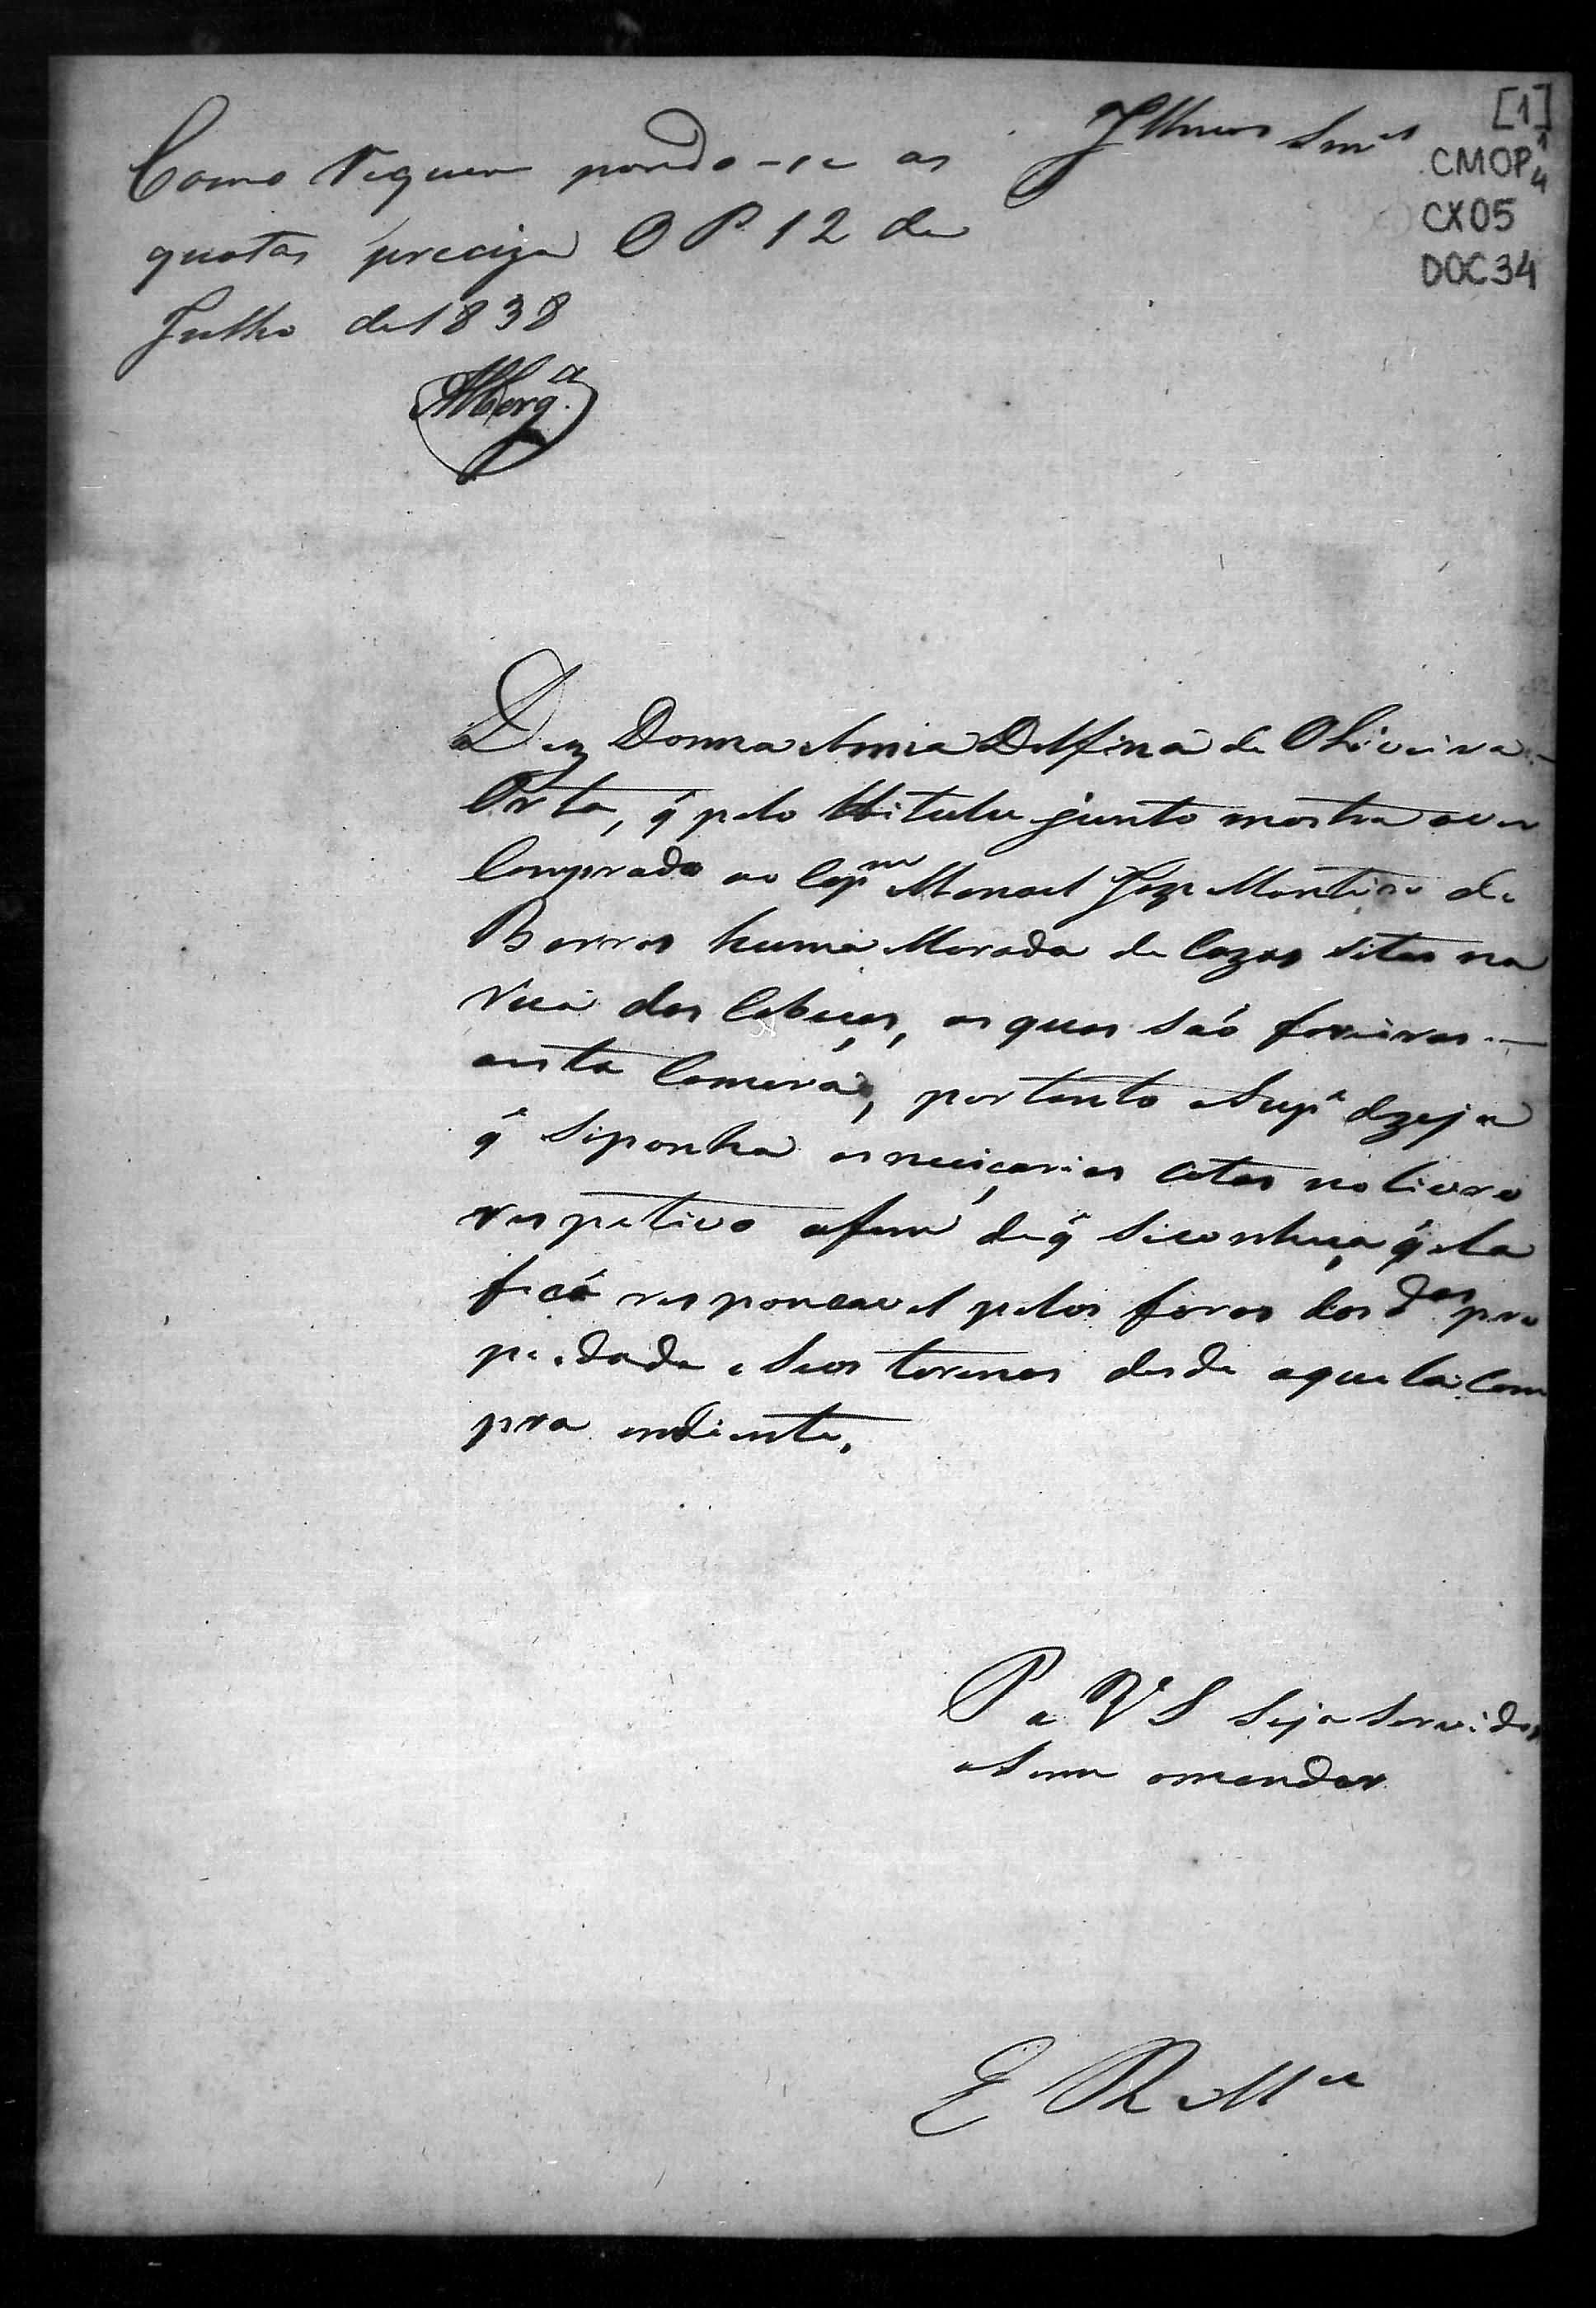 [1]
CMOP 1 4
CX05
DOC34
Illmos Snres
Como requer pondo-se as
quotas preciza O P 12 de
Julho de 1838
Albergª
Diz Donna Anna Delfina de Oliveira
Orta, q̃ pelo titulu junto mostra aver
Comprado ao Capᵐ Manoel Joze Monteiro de
Barros huma Morada de Cazas Sitas na
rua das Cabeças, as quaes são foreiras
aesta Camera, portanto a Supᵉ dezeja
q̃ Siponha as neciçarias Cotas no livro
respetivo afim de q̃ Siconheça q̃ ela
fica responçavel pelos foros das dªˢ pro
piedade e Seos terenos desde aquela Com
pra endiente.
P a VV S Seja Servidos
a Sim omandar
E R Mᶜᵉ